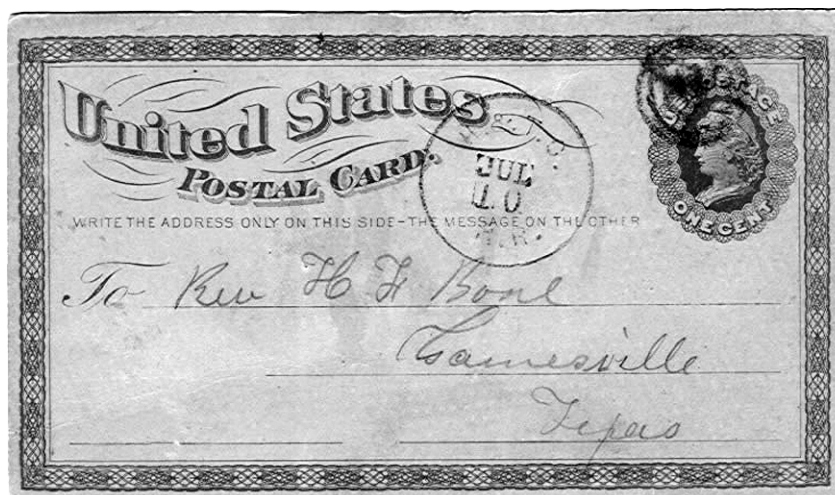 United States
POSTAL CARD.
WRITE THE ADDRESS ONLY ON THIS SIDE–THE MESSAGE ON THE OTHER
U.S. POSTAGE
ONE CENT
JUL
10
To Rev H F Bone
Gainesville
Texas